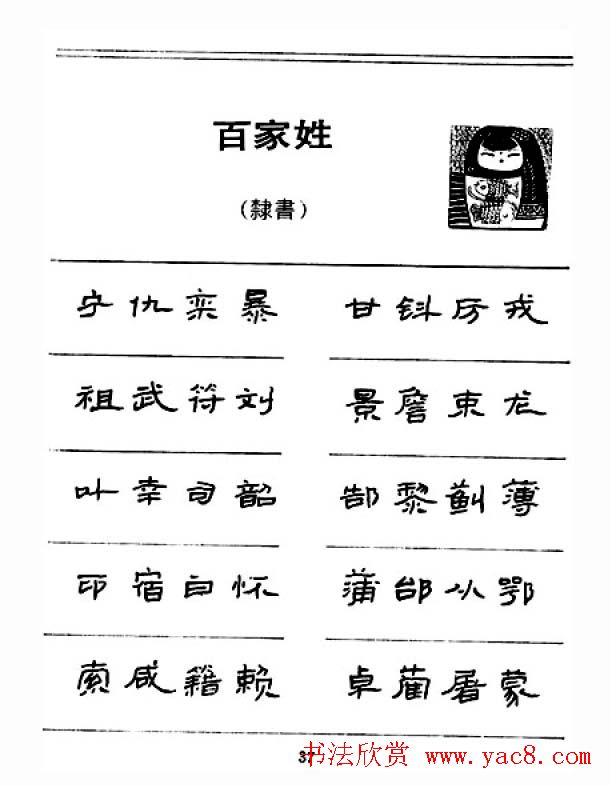 百家姓
(隸書)
宁仇栾暴 甘钭厉戎
祖武符刘 景詹束龙
叶幸司韶 郜黎蓟薄
印宿白怀 蒲邰从鄂
索咸籍赖 卓蔺屠蒙
37 书法欣赏 www.yac8.com